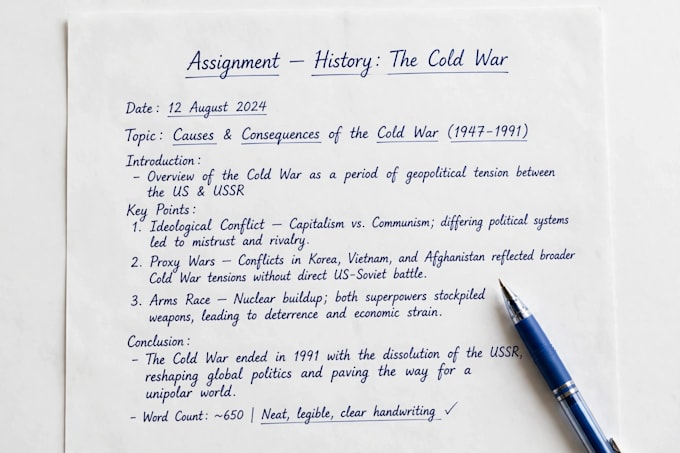 Assignment – History: The Cold War
Date: 12 August 2024
Topic: Causes & Consequences of the Cold War (1947-1991)
Introduction:
– Overview of the Cold War as a period of geopolitical tension between
the US & USSR
Key Points:
1. Ideological Conflict – Capitalism vs. Communism; differing political systems
led to mistrust and rivalry.
2. Proxy Wars – Conflicts in Korea, Vietnam, and Afghanistan reflected broader
Cold War tensions without direct US-Soviet battle.
3. Arms Race – Nuclear buildup; both superpowers stockpiled
weapons, leading to deterrence and economic strain.
Conclusion:
– The Cold War ended in 1991 with the dissolution of the USSR,
reshaping global politics and paving the way for a
unipolar world.
– Word Count: ~650 | Neat, legible, clear handwriting ✓